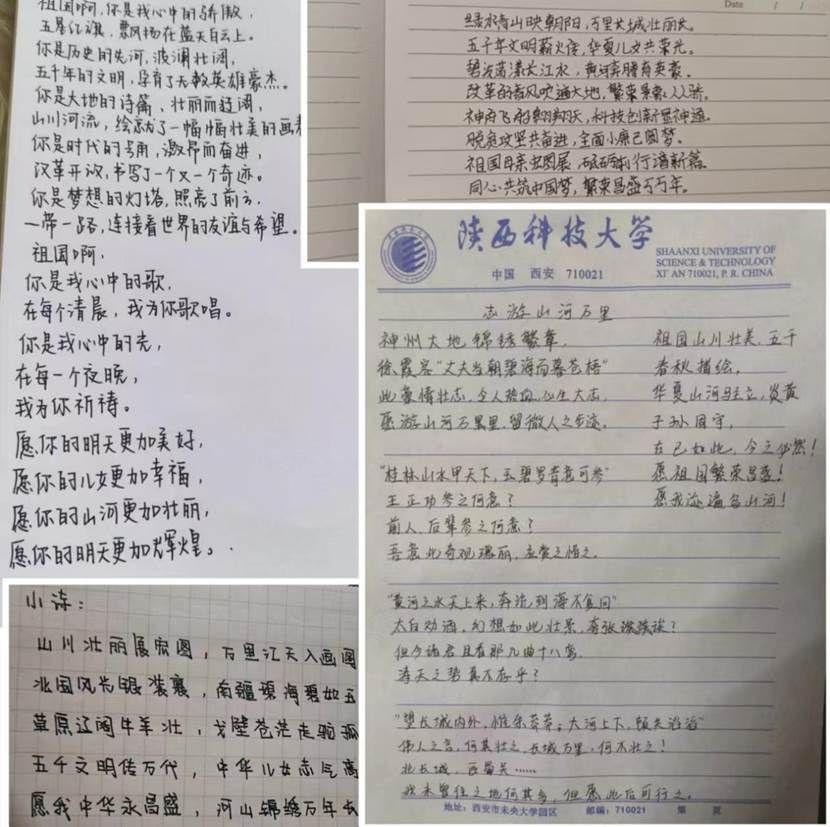 祖国啊,你是我心中的骄傲,
五星红旗,飘扬在蓝天白云上。
你是历史的先河,波澜壮阔,
五千年的文明,孕育了无数英雄豪杰。
你是大地的诗篇,壮丽而辽阔,
山川河流,绘就了一幅幅壮美的画卷
你是时代的号角,激昂而奋进,
改革开放,书写了一个又一个奇迹。
你是梦想的灯塔,照亮了前方,
一带一路,连接着世界的友谊与希望。
祖国啊,
你是我心中的歌,
在每个清晨,我为你歌唱。
你是我心中的光,
在每一个夜晚,
我为你祈祷。
愿你的明天更加美好,
愿你的儿女更加幸福,
愿你的山河更加壮丽,
愿你的明天更加辉煌。
Date
绿水青山映朝阳,万里长城壮丽长。
五千年文明薪火传,华夏儿女共荣光。
碧波荡漾长江水,黄河奔腾育英豪。
改革的春风吹遍大地,繁荣景象人人骄。
神舟飞船翱翔天,科技创新显神通。
脱贫攻坚共奋进,全面小康已圆梦。
祖国母亲宏图展,砥砺前行谱新篇。
同心共筑中国梦,繁荣昌盛万万年。
陕西科技大学
SHAANXI UNIVERSITY OF
SCIENCE & TECHNOLOGY
XI'AN 710021, P. R. CHINA
中国 西安 710021
志游山河万里
神州大地锦绣繁章,
徐霞客"丈夫当朝碧海而暮苍梧"
此豪情壮志,令人热血,心生大志,
愿游山河万里,留微人之步迹。
"桂林山水甲天下,玉碧罗青意可参"
王正功参之何意?
前人、后辈参之何意?
吾意此奇观瑰丽,应赏之惜之。
"黄河之水天上来,奔流到海不复回"
太白劝酒,幻想如此壮景,夸张
但今诸君且看那九曲十八弯,
滔天之势真不存乎?
"望长城内外,惟余莽莽;大河上下,顿失滔滔"
伟人之言,何其壮之,长城万里,何不壮之!
北长城,西
我未曾往之地何其多,但愿此后可行之。
祖国山川壮美,五千
春秋描绘,
华夏山河屹立,炎黄
子孙固守,
古已如此,今之必然!
愿祖国繁荣昌盛!
愿我游遍名山河!
地址:西安市未央大学园区 邮编:710021 第 页
小诗:
山川壮丽展宏图,万里江天入画
北国风光银装裹,南疆碧海碧如玉
草原辽阔牛羊壮,戈壁苍茫走驼
五千文明传万代,中华儿女志气高
愿我中华永昌盛,河山锦绣万年长